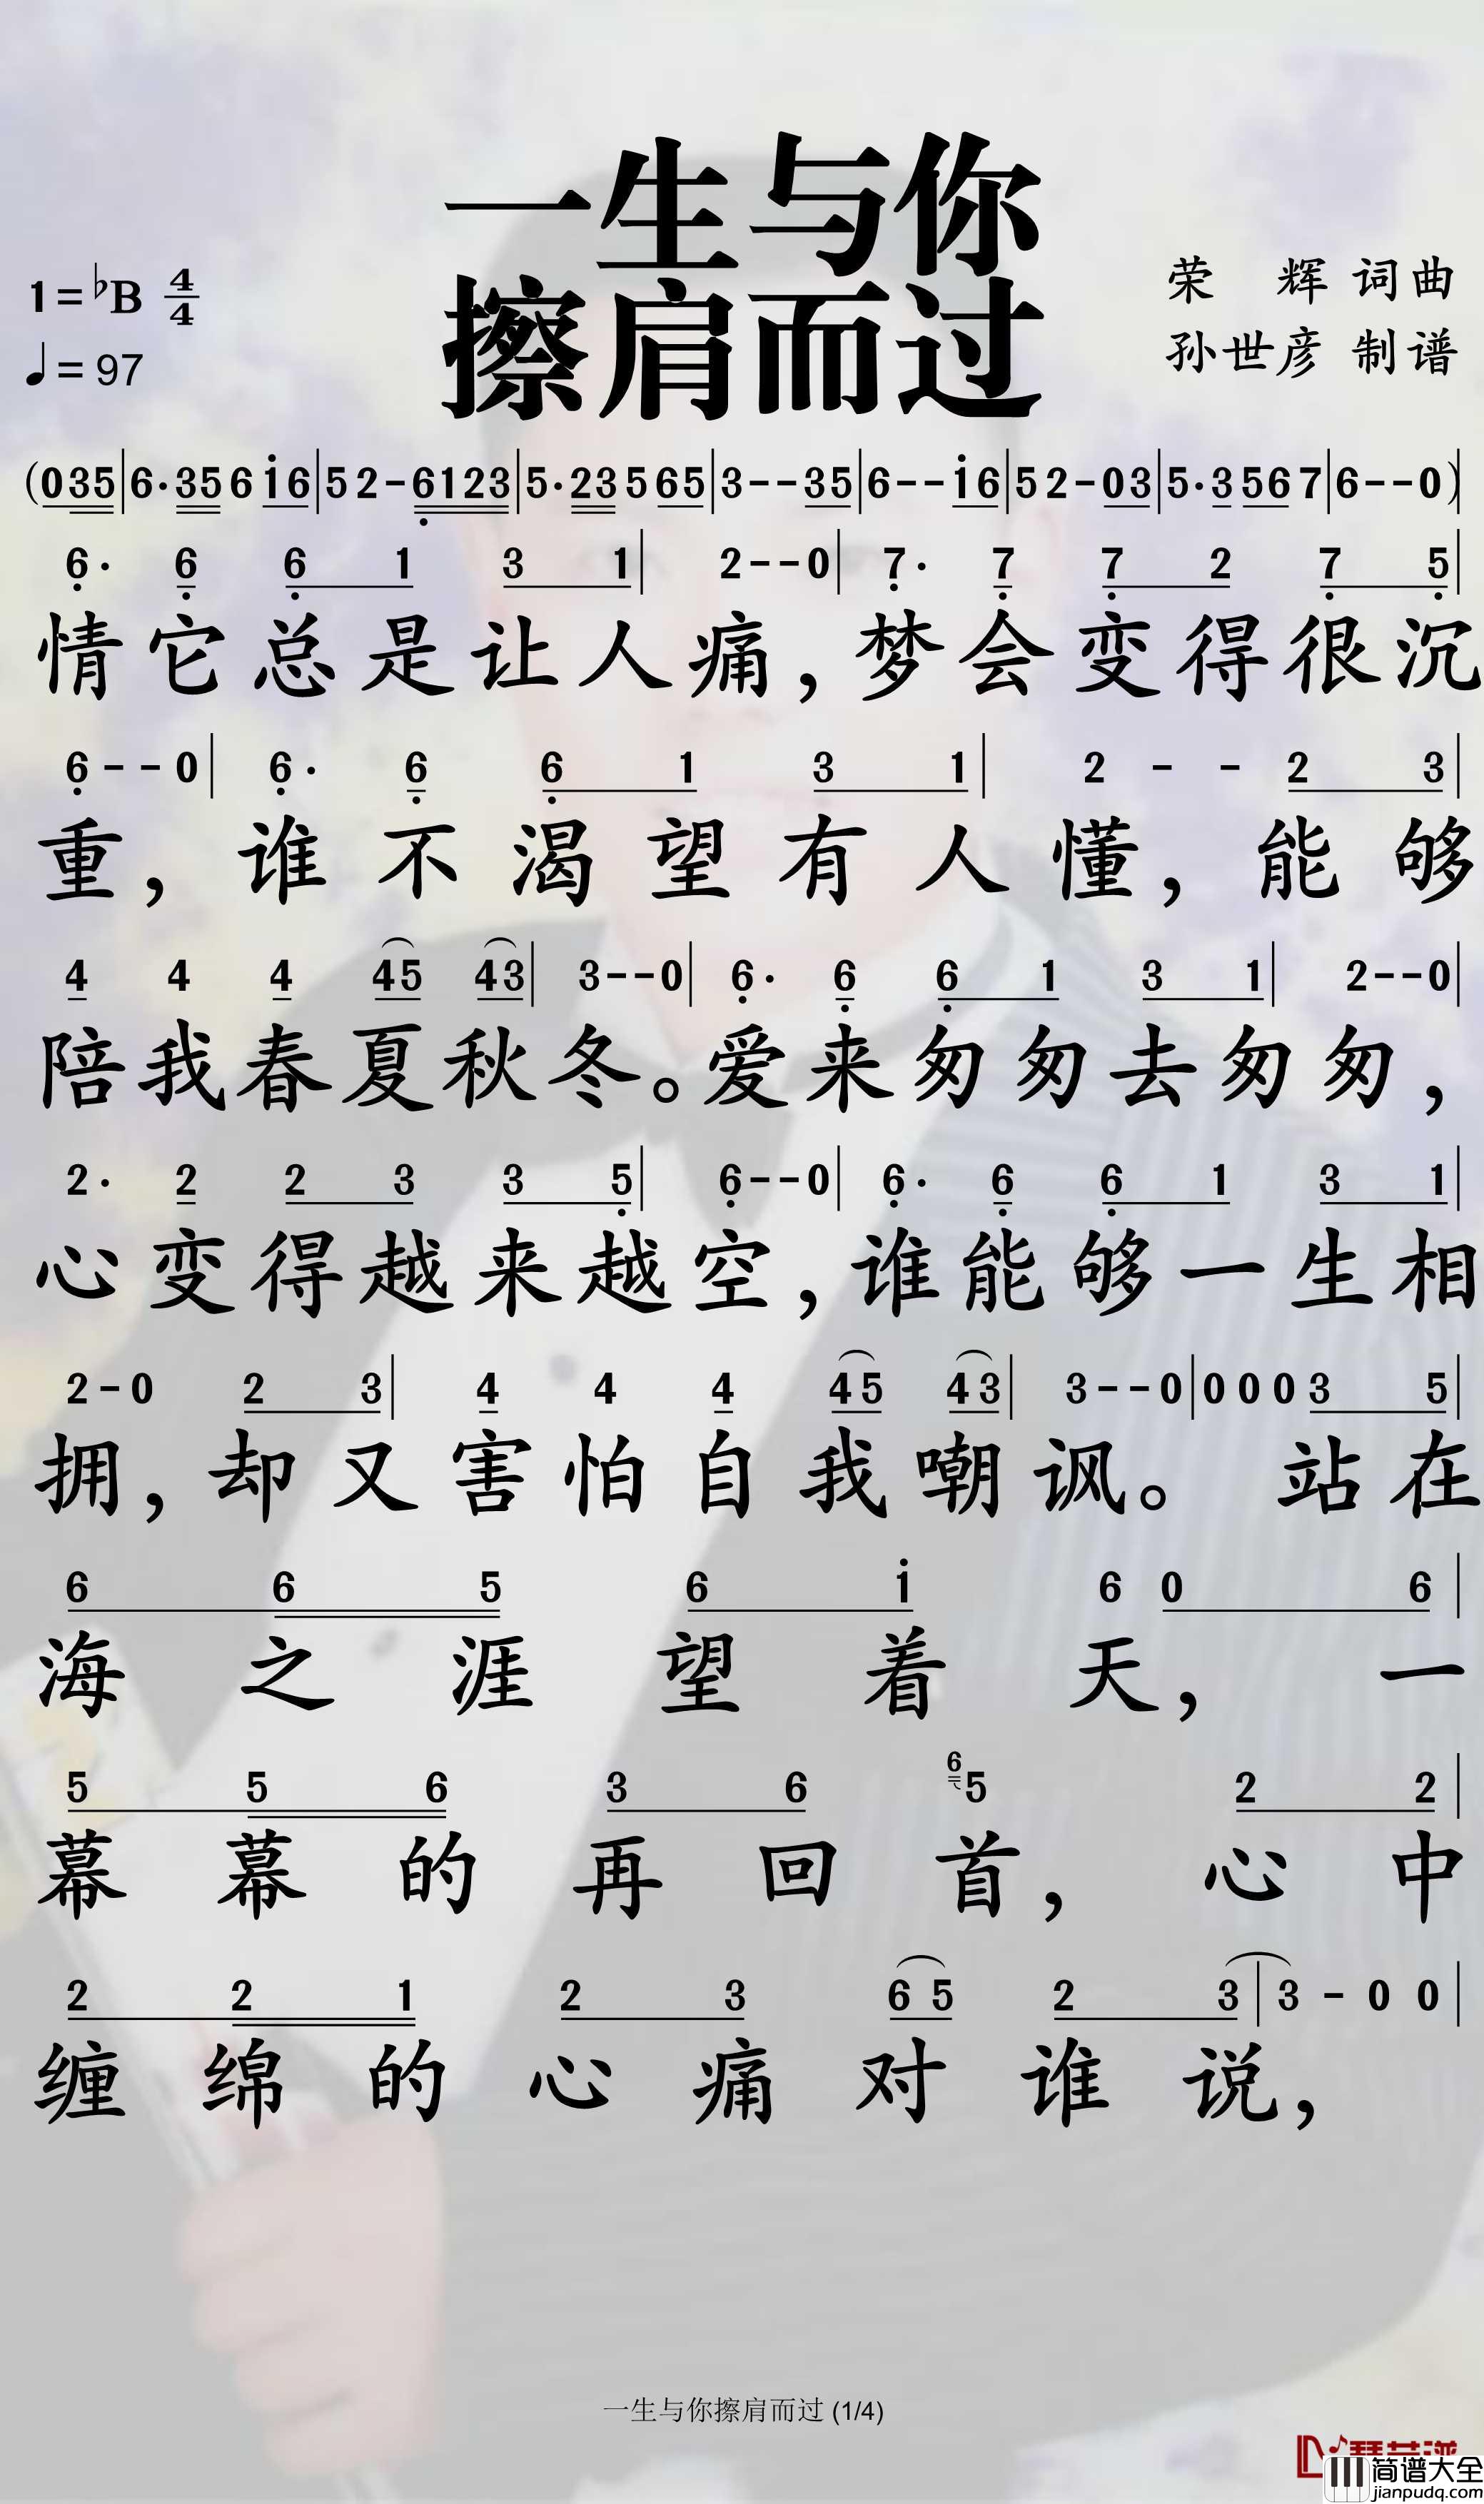 一生与你
擦肩而过
1=♭B 4/4
♩=97
荣 辉 词曲
孙世彦 制谱
(035|6·356i6|52-6123|5·23565|3--35|6--i6|52-03|5·3567|6--0)
6· 6 6 1 3 1| 2--0| 7· 7 7 2 7 5|
情它总是让人痛,梦会变得很沉
6--0| 6· 6 6 1 3 1| 2 - - 2 3|
重,谁不渴望有人懂,能够
4 4 4 45 43| 3--0| 6· 6 6 1 3 1| 2--0|
陪我春夏秋冬。爱来匆匆去匆匆,
2· 2 2 3 3 5| 6--0| 6· 6 6 1 3 1|
心变得越来越空,谁能够一生相
2-0 2 3| 4 4 4 45 43| 3--0|000 3 5|
拥,却又害怕自我嘲讽。站在
6 6 5 6 i 6 0 6|
海之涯望着天,一
5 5 6 3 6 65 2 2|
幕幕的再回首,心中
2 2 1 2 3 65 2 3|3 - 0 0|
缠绵的心痛对谁说,
一生与你擦肩而过 (1/4)
简谱大全
jianpudq.com